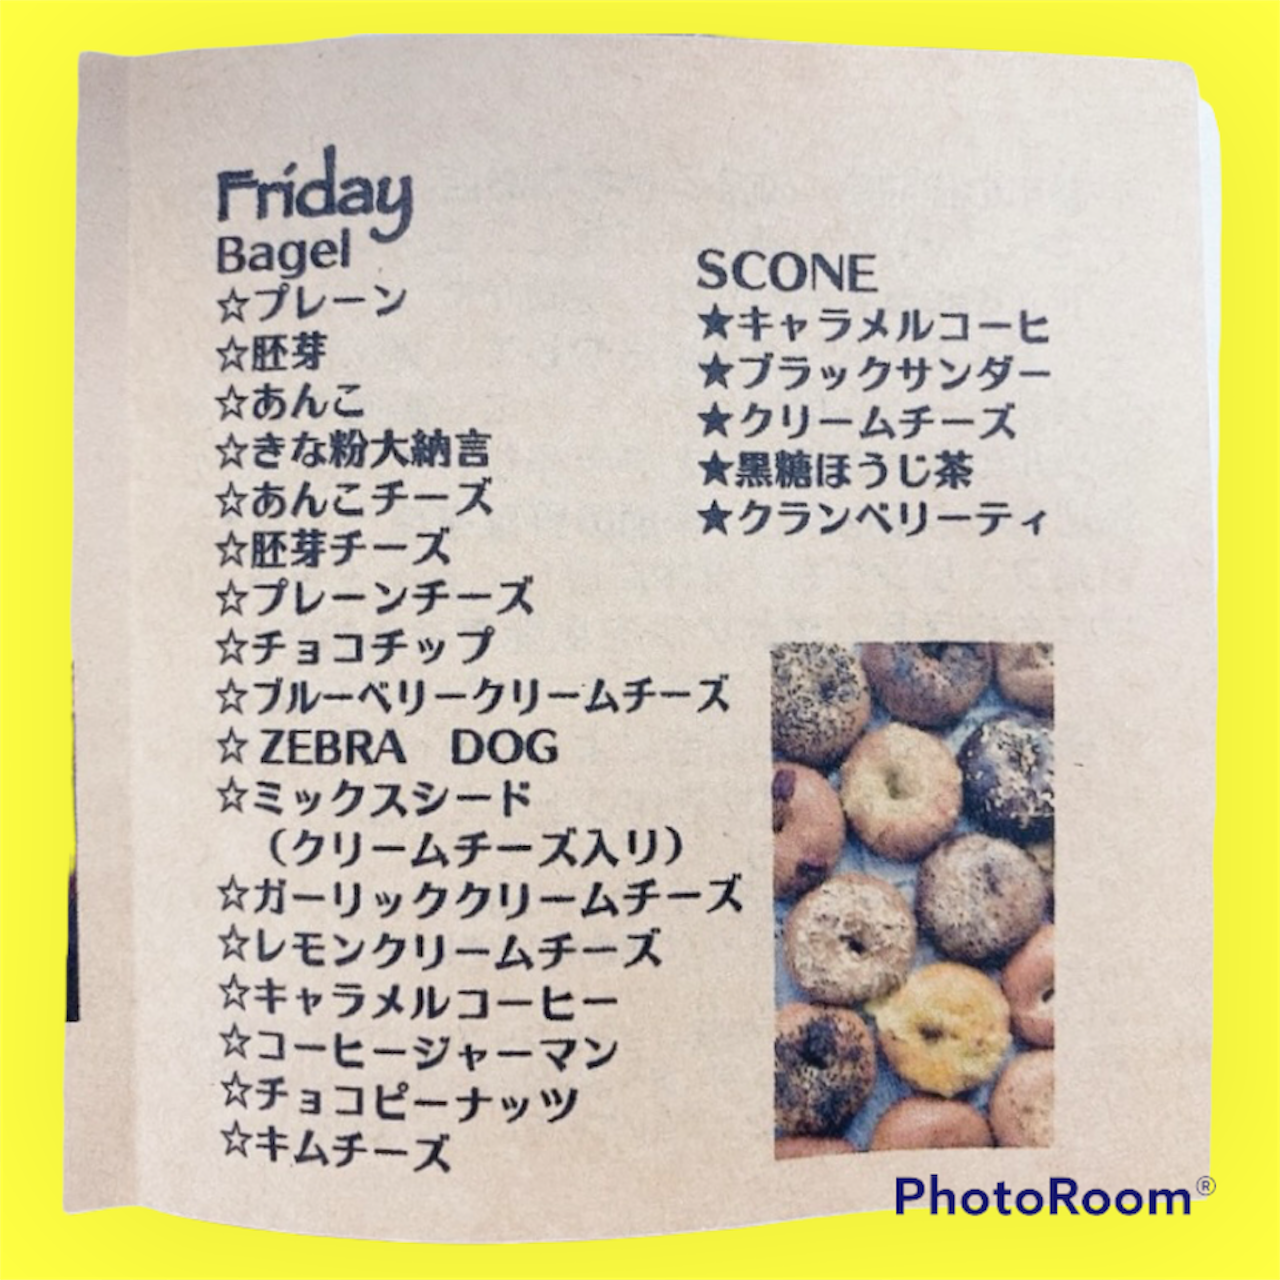 Friday
Bagel
☆プレーン
☆胚芽
☆あんこ
☆きな粉大納言
☆あんこチーズ
☆胚芽チーズ
☆プレーンチーズ
☆チョコチップ
☆ブルーベリークリームチーズ
☆ ZEBRA　DOG
☆ミックスシード
（クリームチーズ入り）
☆ガーリッククリームチーズ
☆レモンクリームチーズ
☆キャラメルコーヒー
☆コーヒージャーマン
☆チョコピーナッツ
☆キムチーズ
SCONE
★キャラメルコーヒ
★ブラックサンダー
★クリームチーズ
★黒糖ほうじ茶
★クランベリーティ
PhotoRoom®